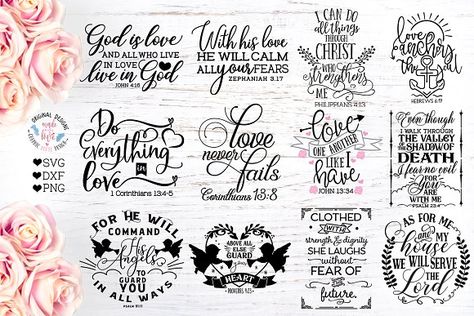 God is love
AND ALL WHO LIVE
IN LOVE
live in God
JOHN 4:16
With his love
HE WILL CALM
ALL your FEARS
ZEPHANIAH 3.17
I CAN DO
all things
THROUGH
CHRIST
who
strengthens
ME
PHILIPPIANS 4:13
love
anchors
the
soul
HEBREWS 6:19
ORIGINAL DESIGNS
made
with
love
SVG
DXF
PNG
Do
everything
in
love
1 Corinthians 13:4-5
love
never
fails
Corinthians 13:8
LOVE
ONE ANOTHER
LIKE I
have
JOHN 13:34
Even though
I WALK THROUGH
THE VALLEY
OF THE
SHADOW OF
DEATH
I fear no evil
FOR
YOU ARE
WITH ME
PSALM 23:4
FOR HE WILL
COMMAND
His
Angels
TO
GUARD
YOU
IN ALL WAYS
PSALM 91:11
ABOVE ALL
ELSE GUARD
your
HEART
PROVERBS 4:23
CLOTHED
WITH
strength & dignity
SHE LAUGHS
WITHOUT
FEAR OF
the
future.
AS FOR ME
AND my
HOUSE
WE WILL SERVE
THE Lord